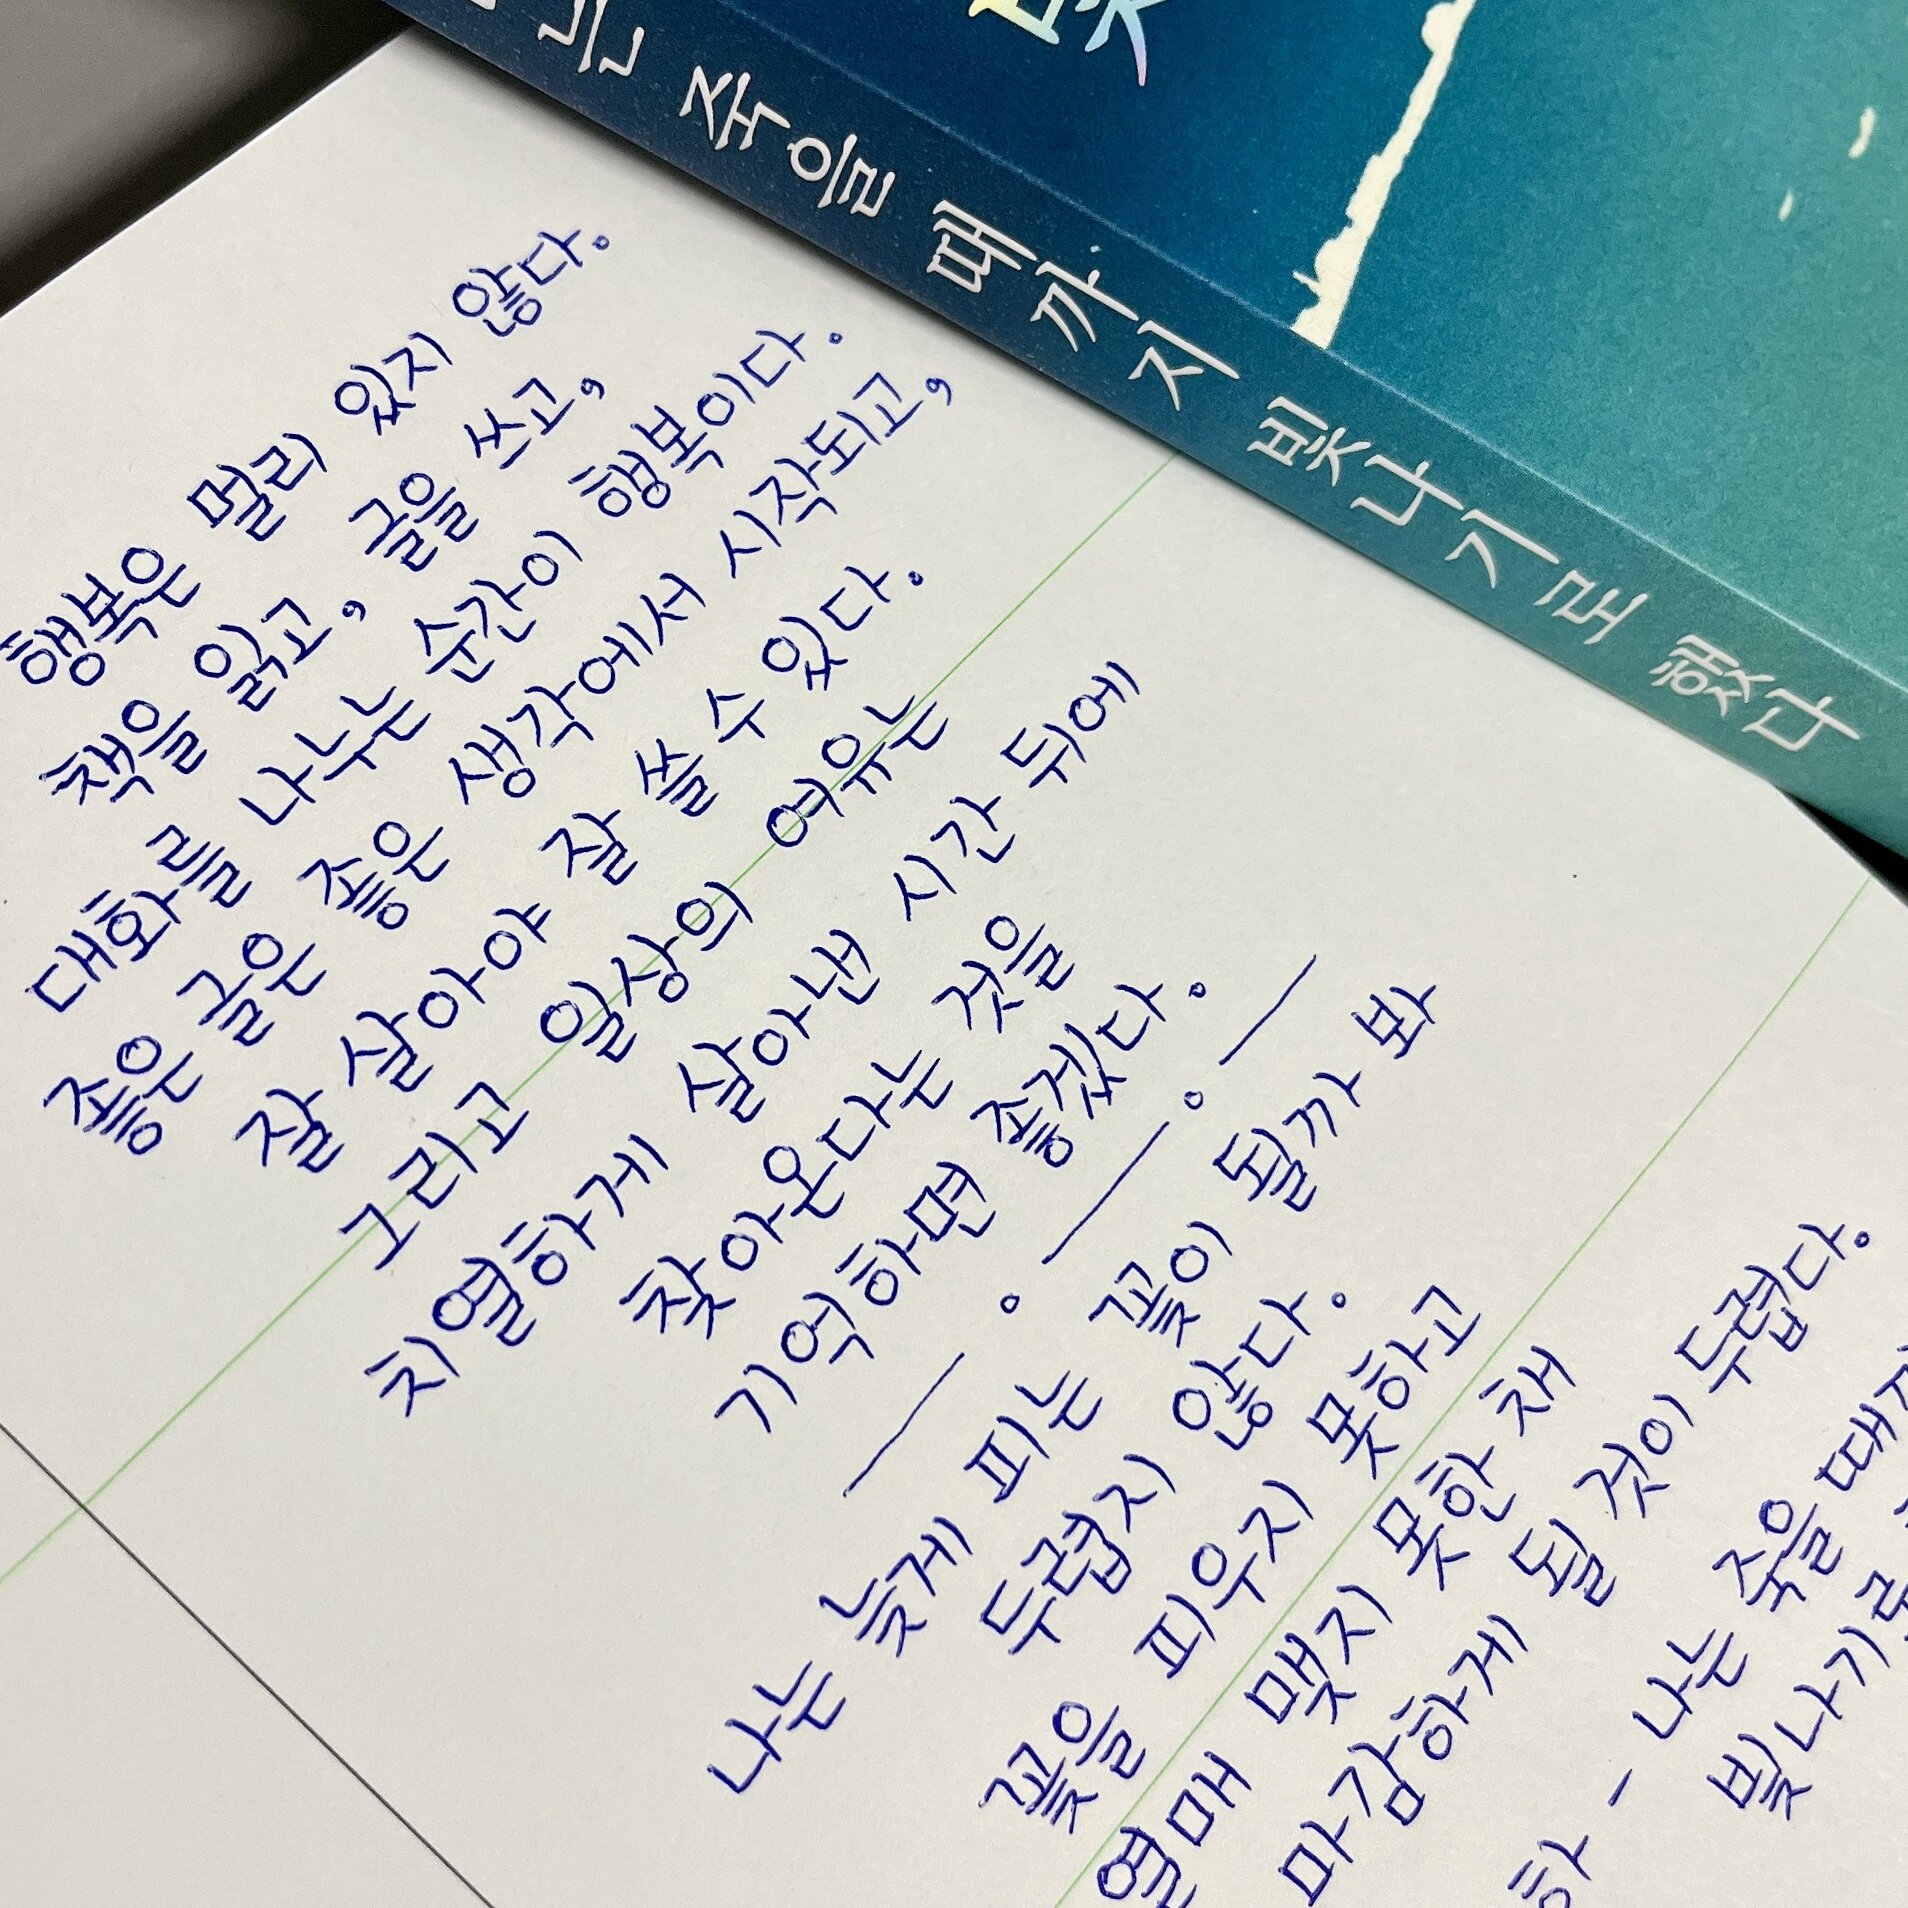 는 죽을 때까지 빛나기로 했다
행복은 멀리 있지 않다.
책을 읽고, 글을 쓰고,
대화를 나누는 순간이 행복이다.
좋은 글은 좋은 생각에서 시작되고,
잘 살아야 잘 쓸 수 있다.
그리고 일상의 여유는
치열하게 살아낸 시간 뒤에
찾아온다는 것을
기억하면 좋겠다.
나는 늦게 피는 꽃이 될까 봐
두렵지 않다.
꽃을 피우지 못하고
열매 맺지 못한 채
마감하게 될 것이 두렵다.
하 - 나는 죽을 때
빛나기로